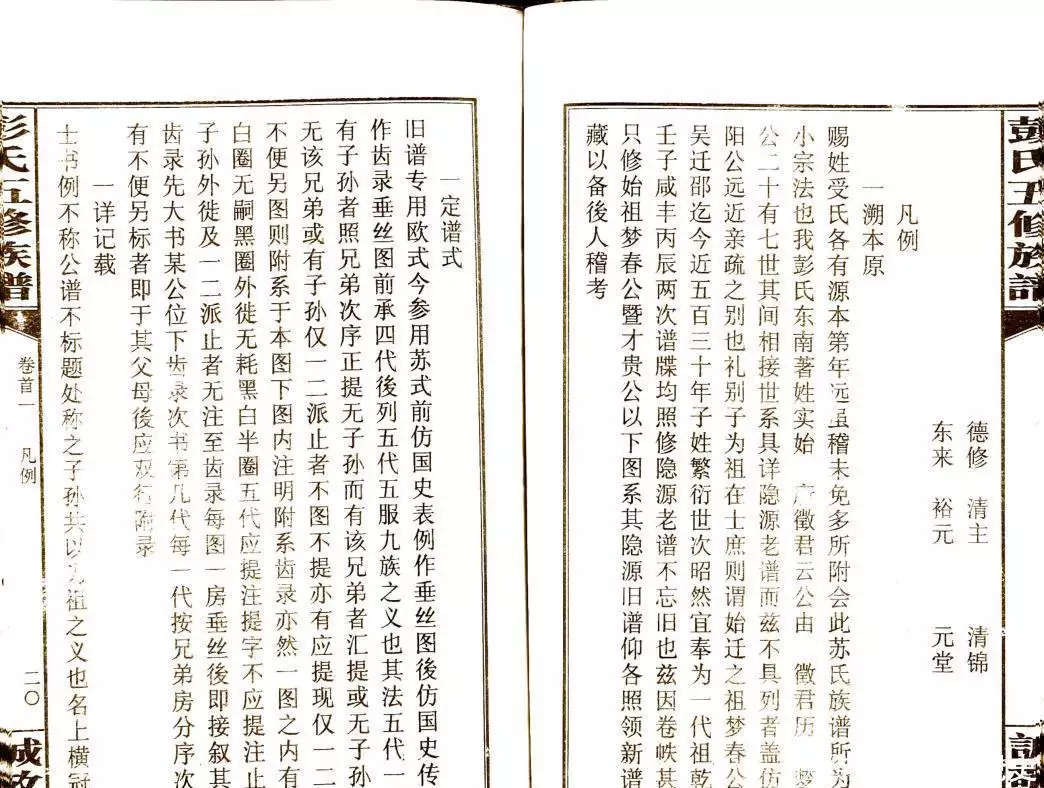 彭氏五修族譜
德修 清主 清锦
东来 裕元 元堂
凡例
一溯本原
赐姓受氏各有源本第年远虽稽未免多所附会此苏氏族谱所为
小宗法也我彭氏东南著姓实始 徵君云公由 徵君历
公二十有七世其间相接世系具详隐源老谱而兹不具列者盖仿
阳公远近亲疏之别也礼别子为祖在士庶则谓始迁之祖梦春公
吴迁邵迄今近五百三十年子姓繁衍世次昭然宜奉为一代祖乾
壬子咸丰丙辰两次谱牒均照修隐源老谱不忘旧也兹因卷帙甚
只修始祖梦春公暨才贵公以下图系其隐源旧谱仰各照领新谱
藏以备後人稽考
一定谱式
旧谱专用欧式今参用苏式前仿国史表例作垂丝图後仿国史传
作齿录垂丝图前承四代後列五代五服九族之义也其法五代一
有子孙者照兄弟次序正提无子孙而有该兄弟者汇提或无子孙
无该兄弟或有子孙仅一二派止者不图不提亦有应提现仅一二
不便另图则附系于本图下图内注明附系齿录亦然一图之内有
白圈无嗣黑圈外徙无耗黑白半圈五代应提注提字不应提注止
子孙外徙及一二派止者无注至齿录每图一房垂丝後即接叙其
齿录先大书某公位下齿录次书第几代每一代按兄弟房分序次
有不便另标者即于其父母後应双行附录
一详记载
士书例不称公谱不标题处称之子孙共以为祖之义也名上横冠
彭氏五修族谱
卷首一
凡例
二〇